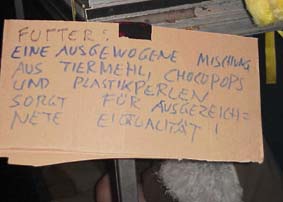 FUTTER:
EINE AUSGEWOGENE MISCHUNG
AUS TIERMEHL, CHOCOPOPS
UND PLASTIKPERLEN
SORGT FÜR AUSGEZEICH=
NETE EIQUALITÄT!